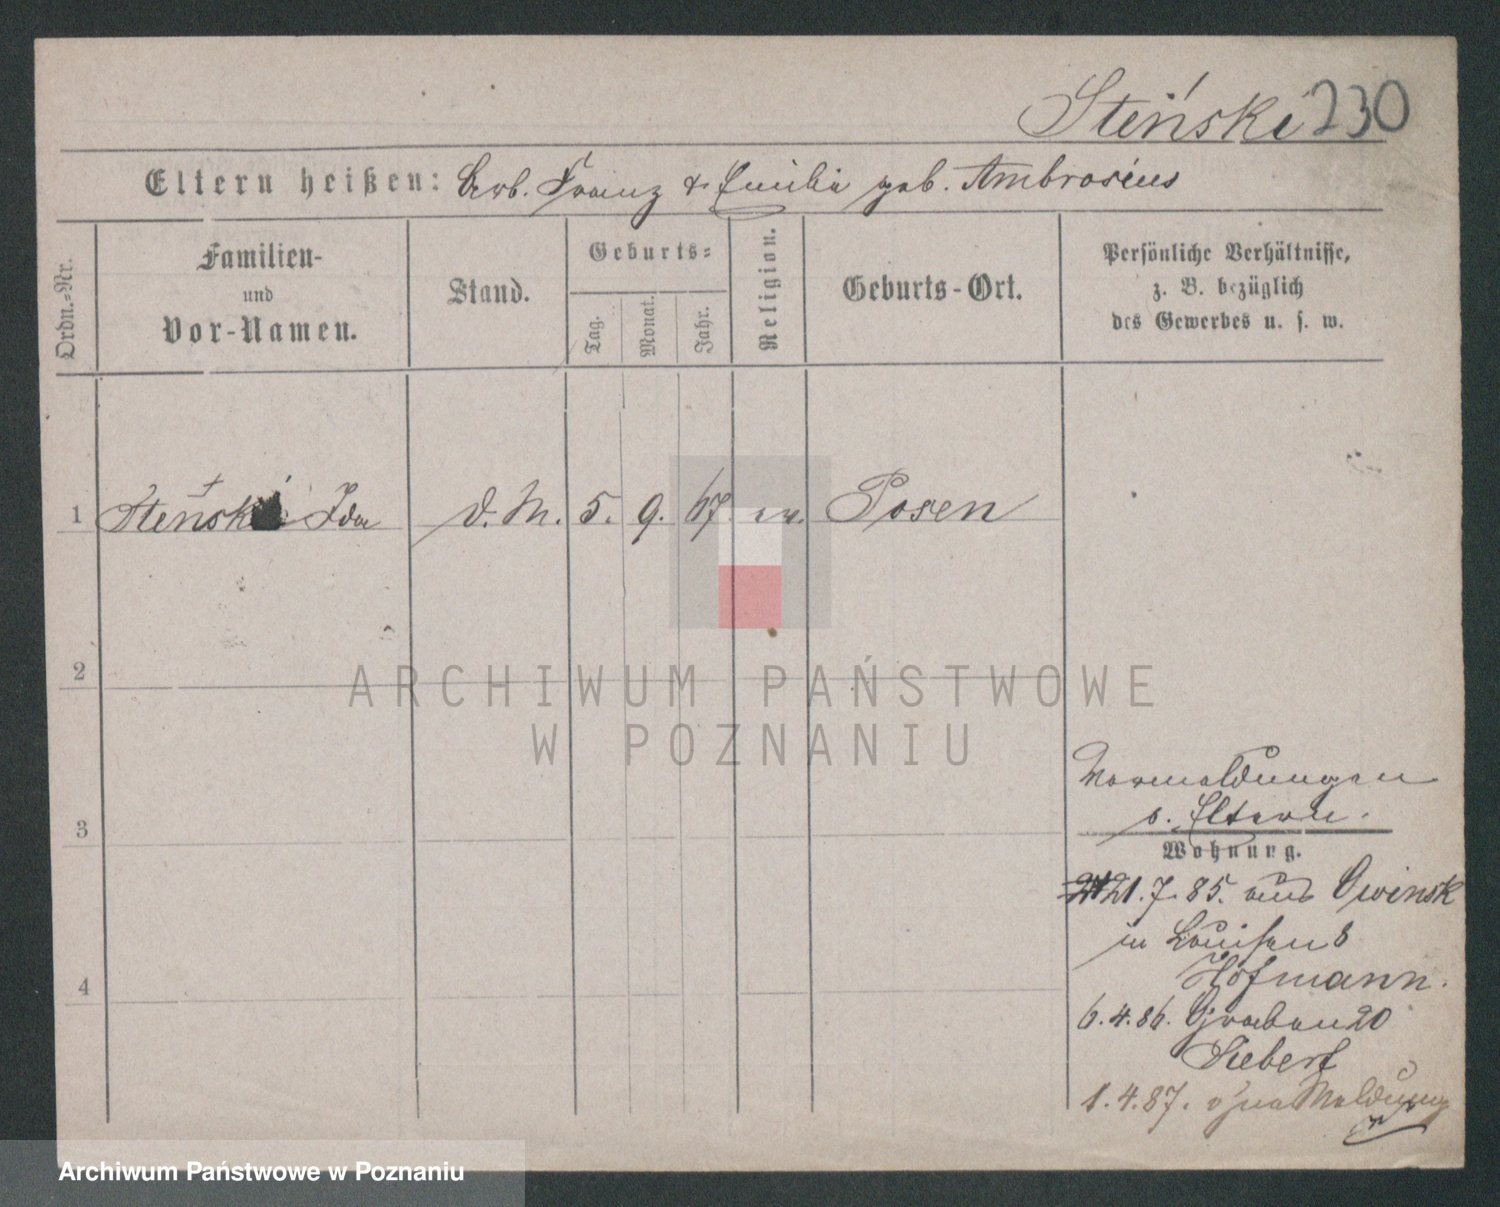 Steński 230
Eltern heißen: Arb. Franz & Emilie geb. Ambrosius
Ordn.-Nr.
Familien-
und
Vor-Namen.
Stand.
Geburts-
Tag.
Monat.
Jahr.
Religion.
Geburts-Ort.
Persönliche Verhältnisse,
z. B. bezüglich
des Gewerbes u. s. w.
1 Steński Ida D. M. 5. 9. 67. ev. Posen
2
3
4
Vormeldungen
s. Eltern.
Wohnung.
21.7.85. aus Owinsk
in Louisen 8
Hofmann.
6.4.86. Graben 20
Siebert
1.4.87. ohne Meldung
ARCHIWUM PAŃSTWOWE
W POZNANIU
Archiwum Państwowe w Poznaniu